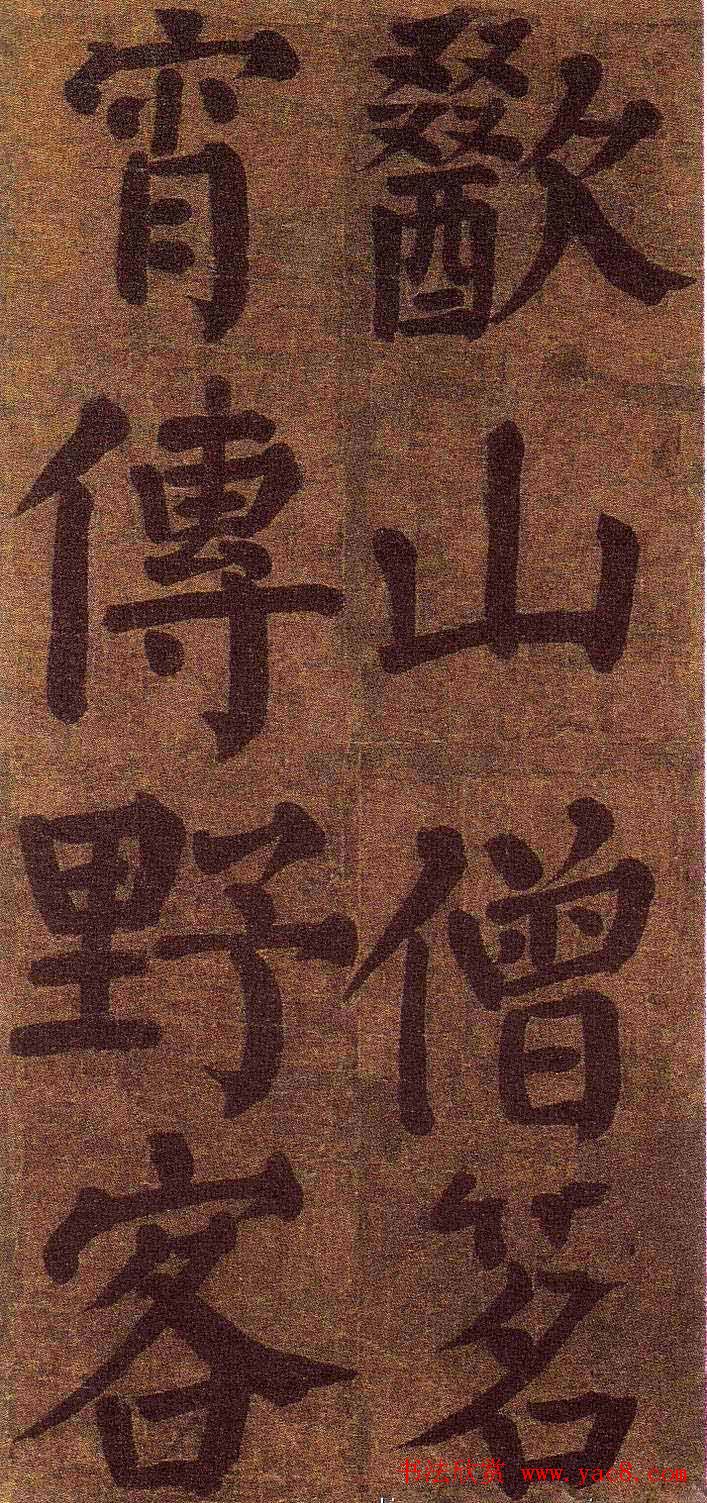 歠山僧茗
宵傳野客
书法欣赏 www.yac8.com